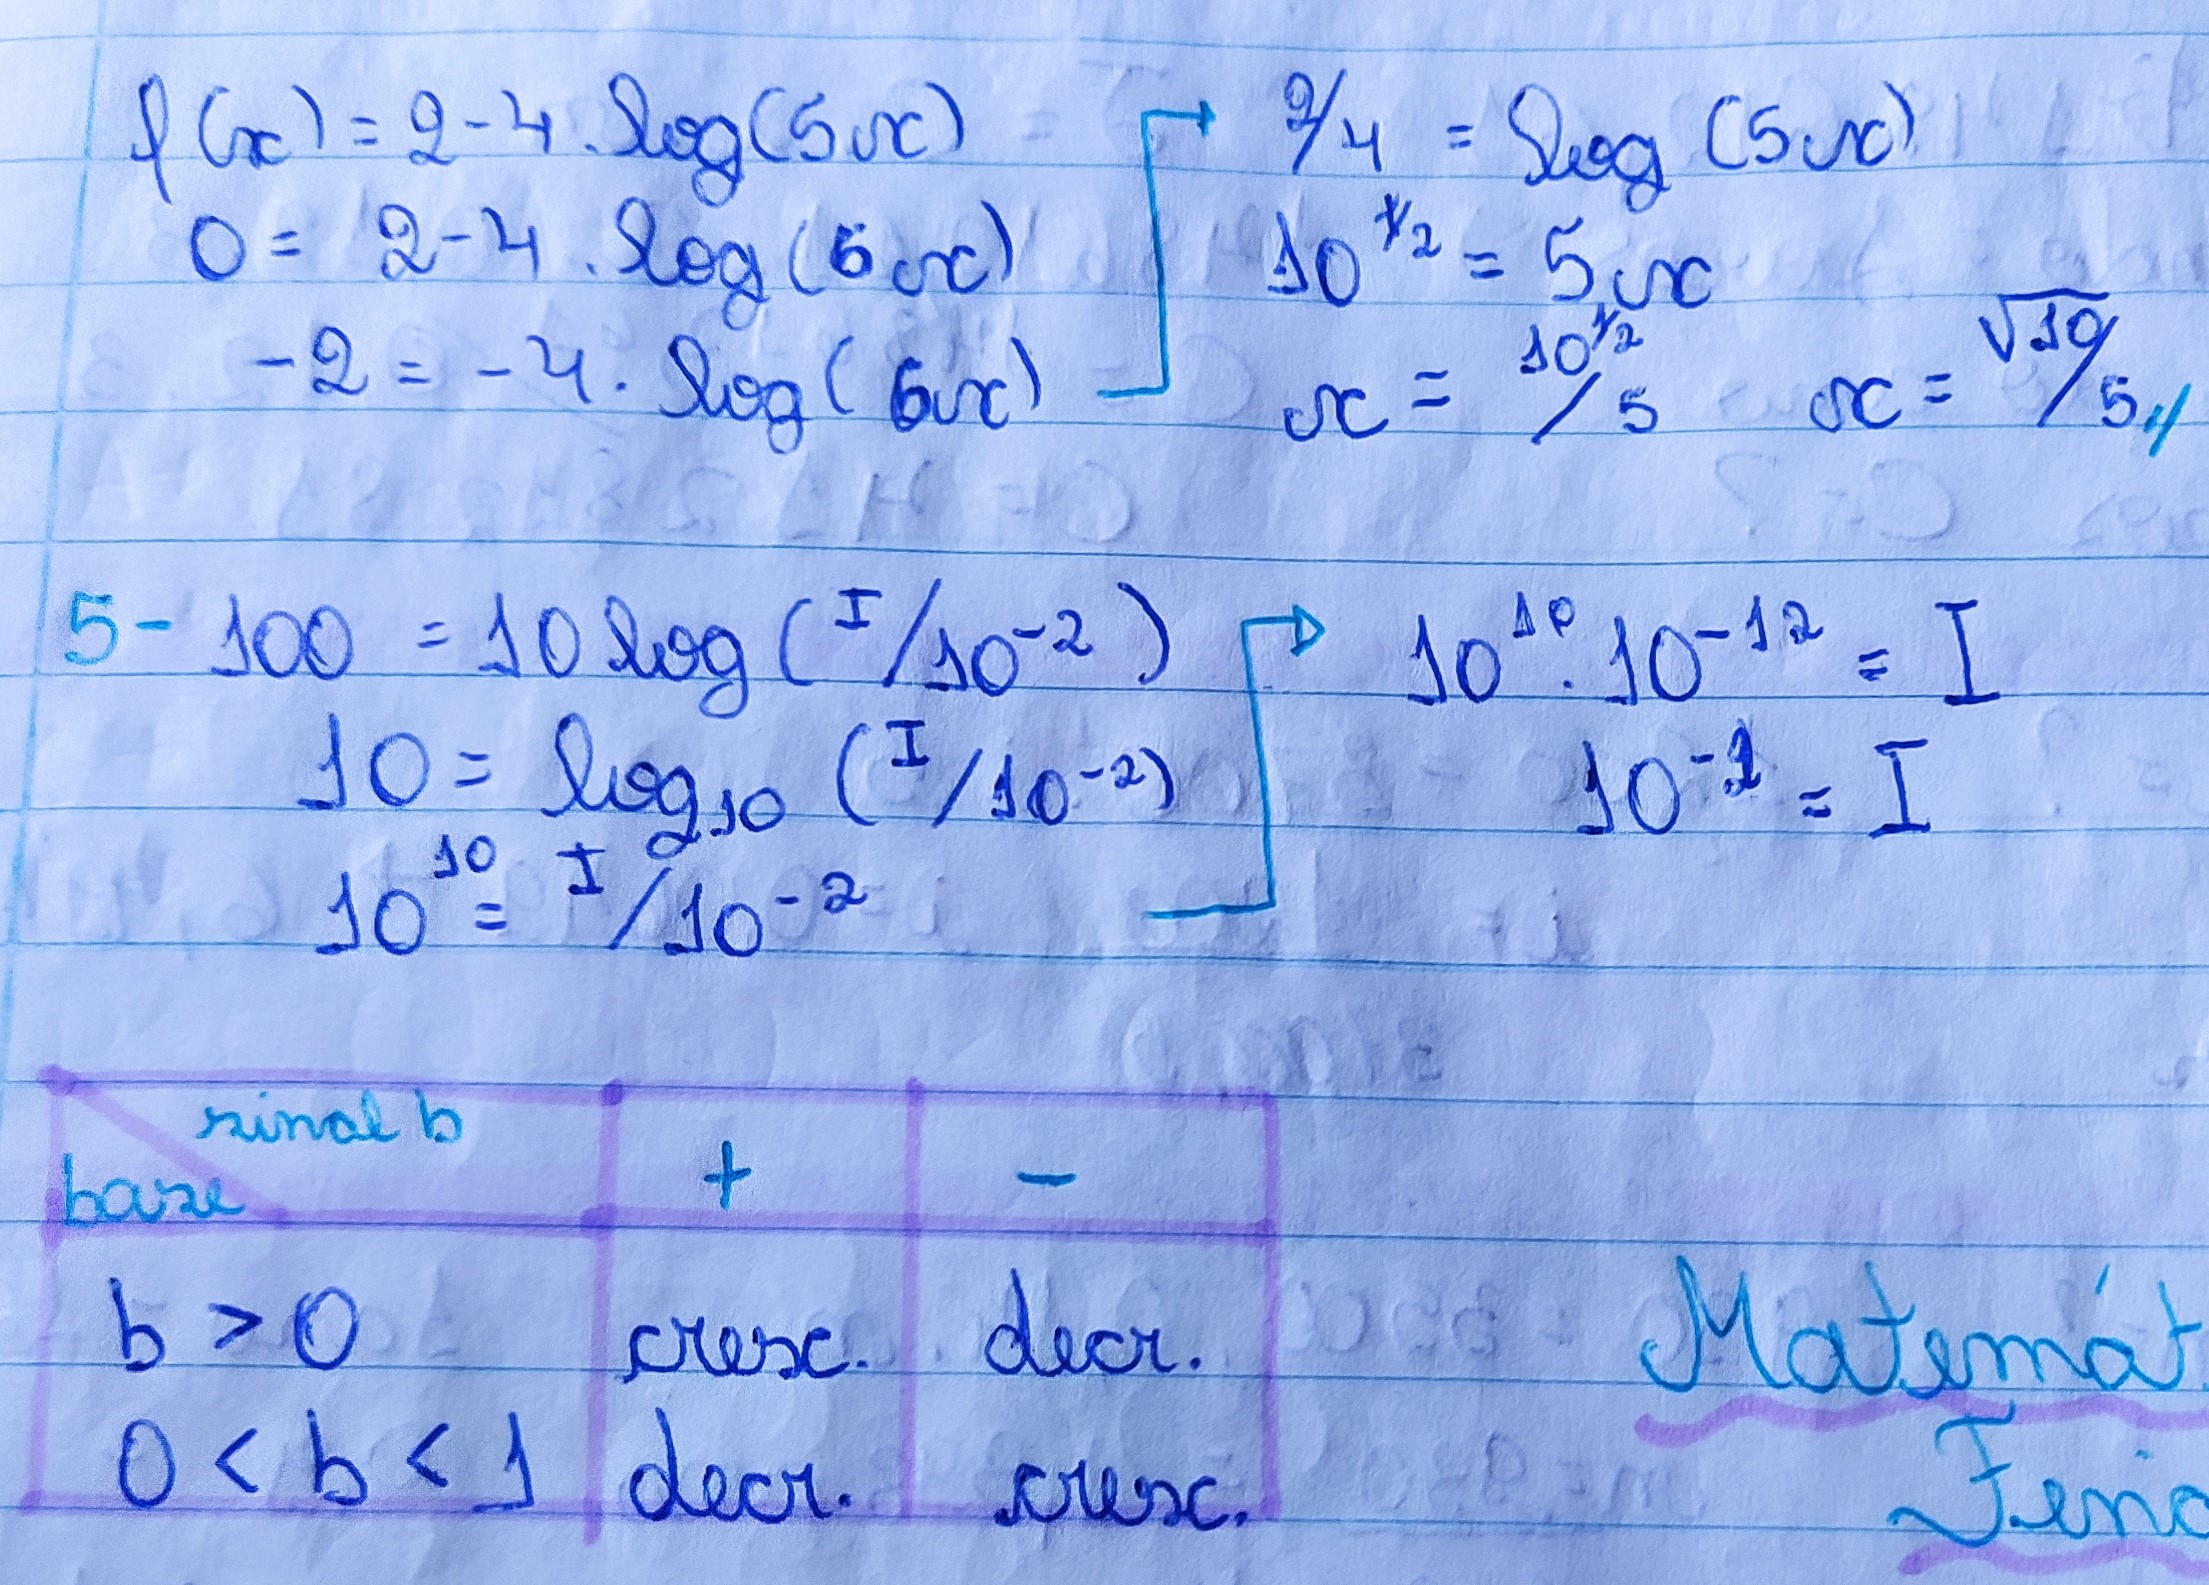 f(x) = 2 - 4 . log(5x)
0 = 2 - 4 . log(5x)
-2 = -4 . log(5x)
2/4 = log (5x)
10^1/2 = 5x
x = 10^1/2 / 5 x = √10 / 5
5- 100 = 10 log ( I / 10^-2 )
10 = log₁₀ ( I / 10^-2 )
10^10 = I / 10^-2
10^10 . 10^-12 = I
10^-2 = I
sinal b
base
+ -
b > 0 cresc. decr.
0 < b < 1 decr. cresc.
Matemát